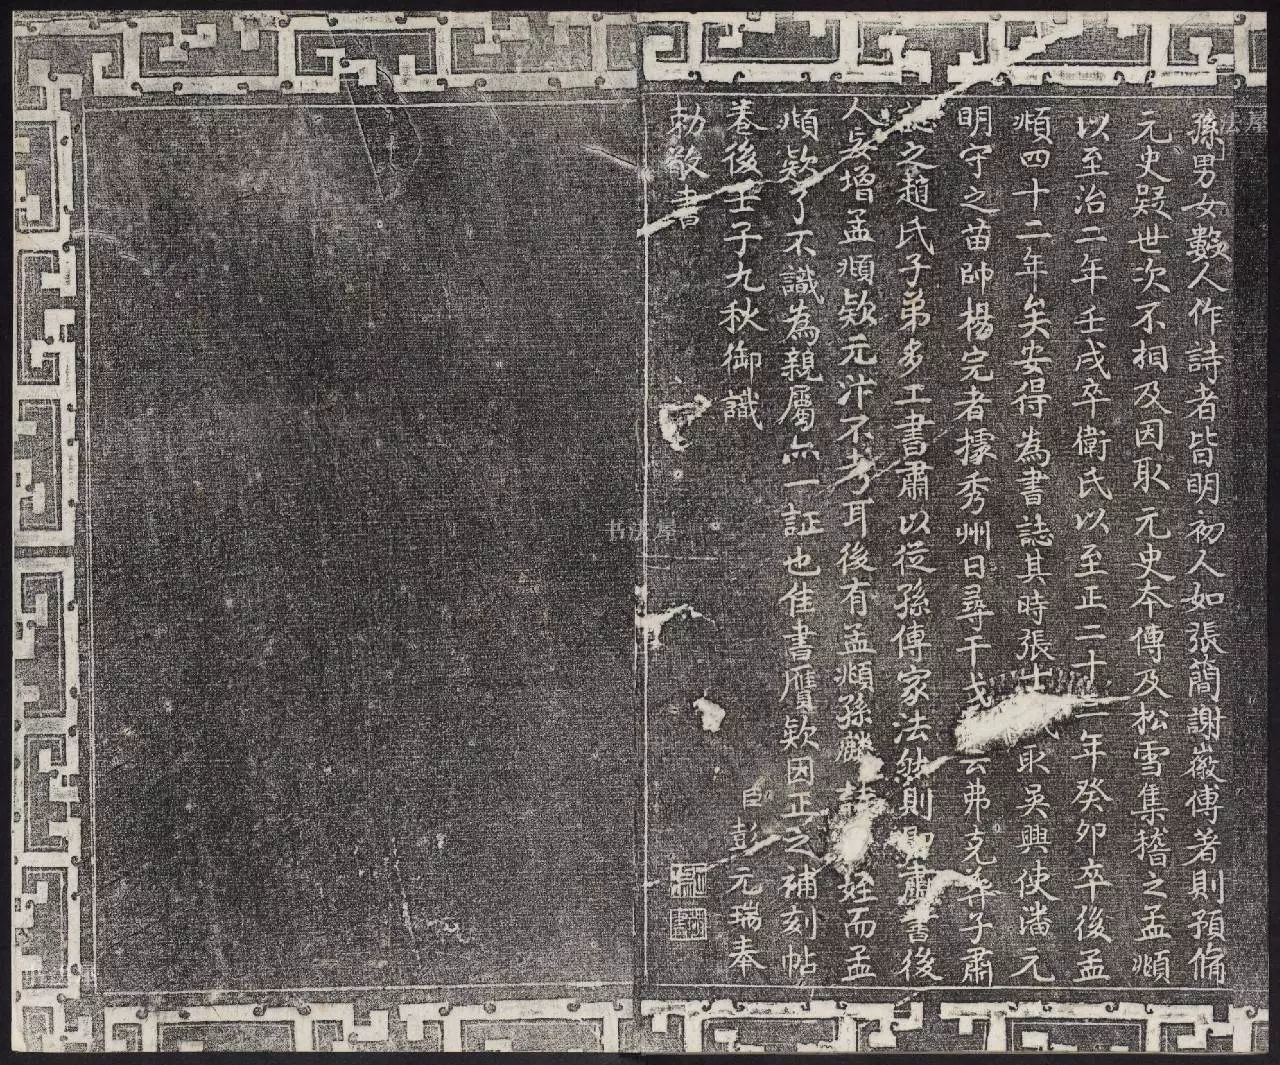 孫男女數人作詩者皆明初人如張簡謝徽傅著則預脩
元史疑世次不相及因取元史本傳及松雪集稽之孟頫
以至治二年壬戌卒衛氏以至正二十三年癸卯卒後孟
頫四十二年矣安得為書誌其時張士誠取吳興使潘元
明守之苗帥楊完者據秀州日尋干戈云弗克葬子肅
誌之趙氏子弟多工書肅以從孫傳家法然則即肅書後
人妄增孟頫欵元汴不考耳後有孟頫孫麟姪而孟
頫欵了不識為親屬亦一証也佳書贋欵因正之補刻帖
卷後壬子九秋御識
臣彭元瑞奉
勅敬書
书法屋
书法屋